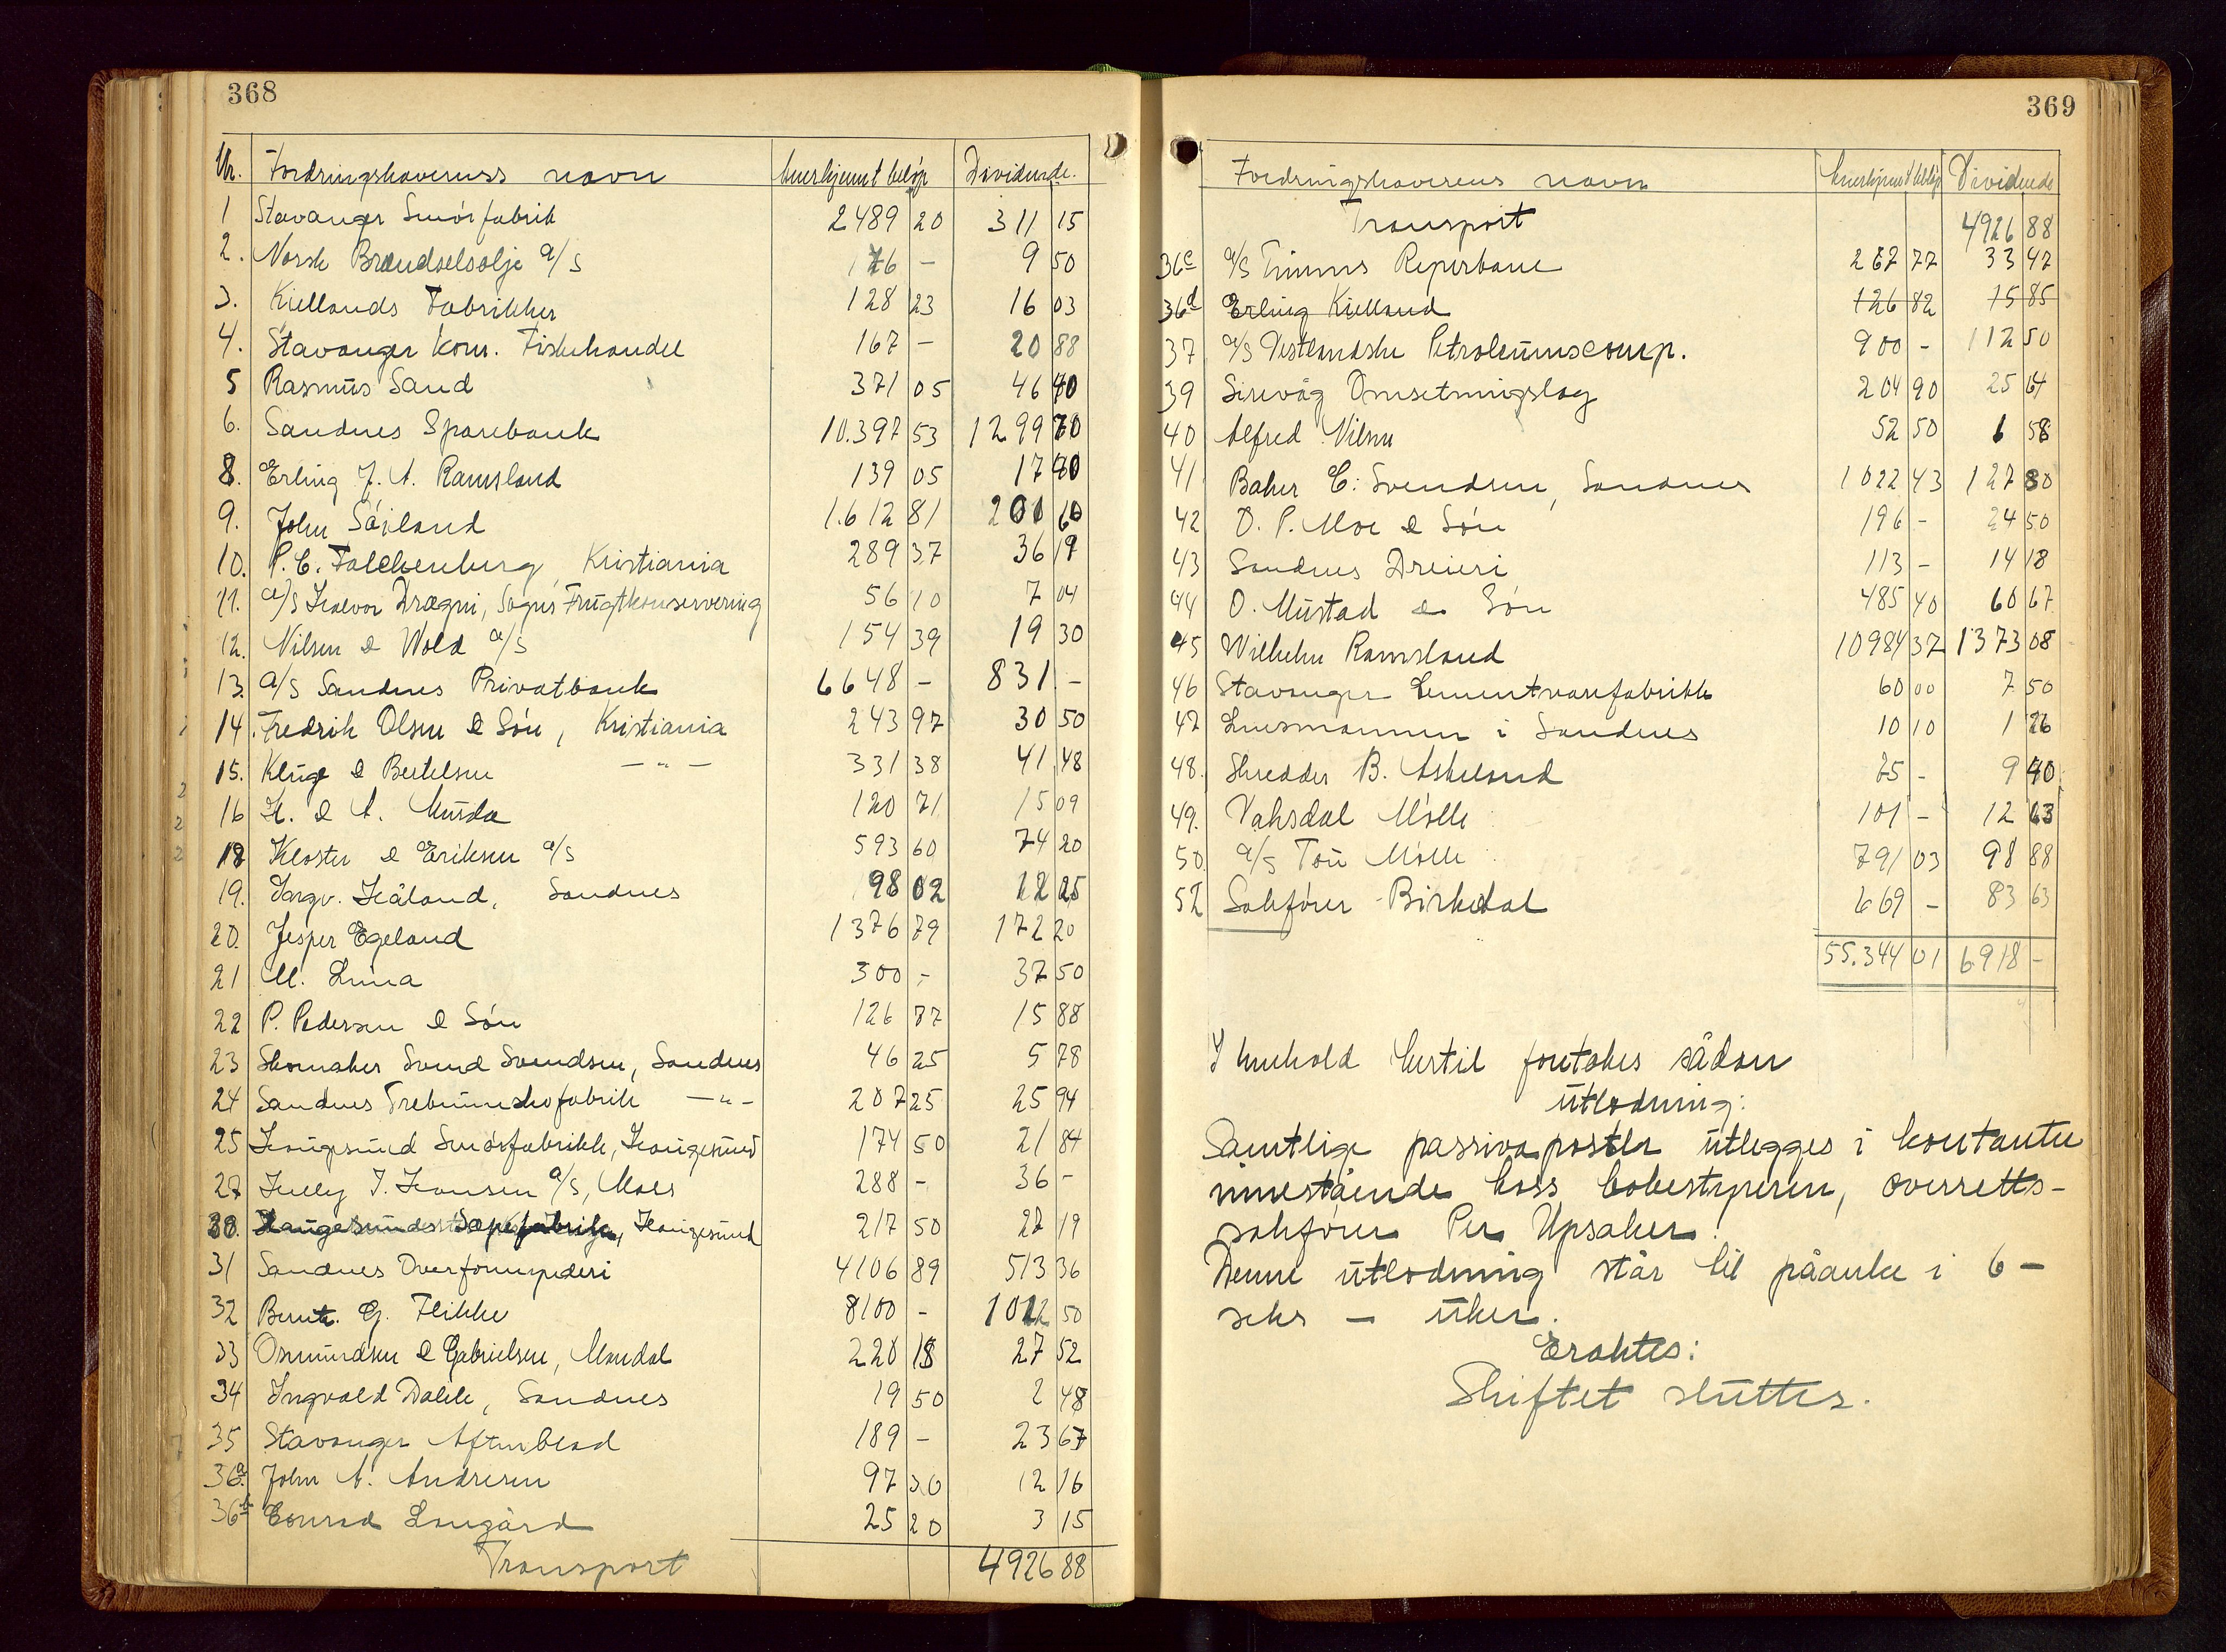 368
Nr. Fordringshaverens navn Anerkjennt beløp Dividende.
1 Stavanger Smørfabrik 2489 20 311 15
2. Norsk Brændselsolje A/S 76 - 9 50
3. Kiellands Fabrikker 128 23 16 03
4. Stavanger kom. Fiskehandel 167 - 20 88
5 Rasmus Sand 371 05 46 40
6. Sandnes Sparebank 10.397 53 1299 70
8. Erling J. A. Ramsland 139 05 17 40
9. John Søiland 1.612 81 201 60
10. P. C. Falchenburg, Kristiania 289 37 36 19
11. A/S Halvor Drægni, Sogns Frugtkonservering 56 10 7 04
12. Nilsen & Wold A/S 154 39 19 30
13. A/S Sandnes Privatbank 6648 - 831 -
14. Fredrik Olsen & Søn, Kristiania 243 97 30 50
15. Kluge & Bertelsen - " - 331 38 41 48
16 H. & A. 120 71 15 09
18 Kloster & Eriksen A/S 593 60 74 20
19. Ingv. Håland, Sandnes 98 02 12 25
20. Jesper Egeland 1376 79 172 20
21 M. Lima 300 - 37 50
22 P. Pedersen & Søn 126 77 15 88
23 Skomaker Svend Svendsen, Sandnes 46 25 5 78
24 Sandnes Trebunnskofabrik - " - 207 25 25 94
25 Haugesund Smørfabrikk, Haugesund 174 50 21 84
27 Helly J. Hansen A/S, Moss 288 - 36 -
30. Haugesunds Sæpefabrik, Haugesund 217 50 27 19
31 Sandnes Overformynderi 4106 89 513 36
32 Bernt. G. Flikke 8100 - 1012 50
33 Osmundsen & Gabrielsen, Mandal 220 18 27 52
34 Ingvald Dahle, Sandnes 19 50 2 48
35 Stavanger Aftenblad 189 - 23 67
36a. John A. Andresen 97 30 12 16
36b Conrad Langård 25 20 3 15
Transport 4926 88
369
Fordringshaverens navn Anerkjennt beløp Dividende
Transport 4926 88
36c A/S Trinns Reperbane 267 77 33 47
36d Erling Kielland 126 82 15 85
37 A/S Vestlandske Petroleumscomp. 900 - 112 50
39 Sirevåg Omsetningslag 204 90 25 64
40 Alfred Nilsen 52 50 6 58
41 Baker C. Svendsen, Sandnes 1022 43 127 80
42 O. P. Moe & Søn 196 - 24 50
43 Sandnes Dreieri 113 - 14 18
44 O. Mustad & Søn 485 40 60 67
45 Wilhelm Ramsland 10984 37 1373 08
46 Stavanger Cementvarefabrikk 60 00 7 50
47 Lensmannen i Sandnes 10 10 1 26
48. Skredder B. Askeland 75 - 9 40
49. Vaksdal Mølle 101 - 12 63
50. A/S Tou Mølle 791 03 98 88
52 Sakfører Birkedal 669 - 83 63
55.344 01 6918 -
I henhold hertil foretakes sådan
utlodning:
Samtlige passivaposter utlegges i kontante
innestående hoss bobestyreren, overretts-
sakfører Per Upsaker.
Denne utlodning står til påanke i 6 -
seks - uker.
Eraktes:
Skiftet sluttes.